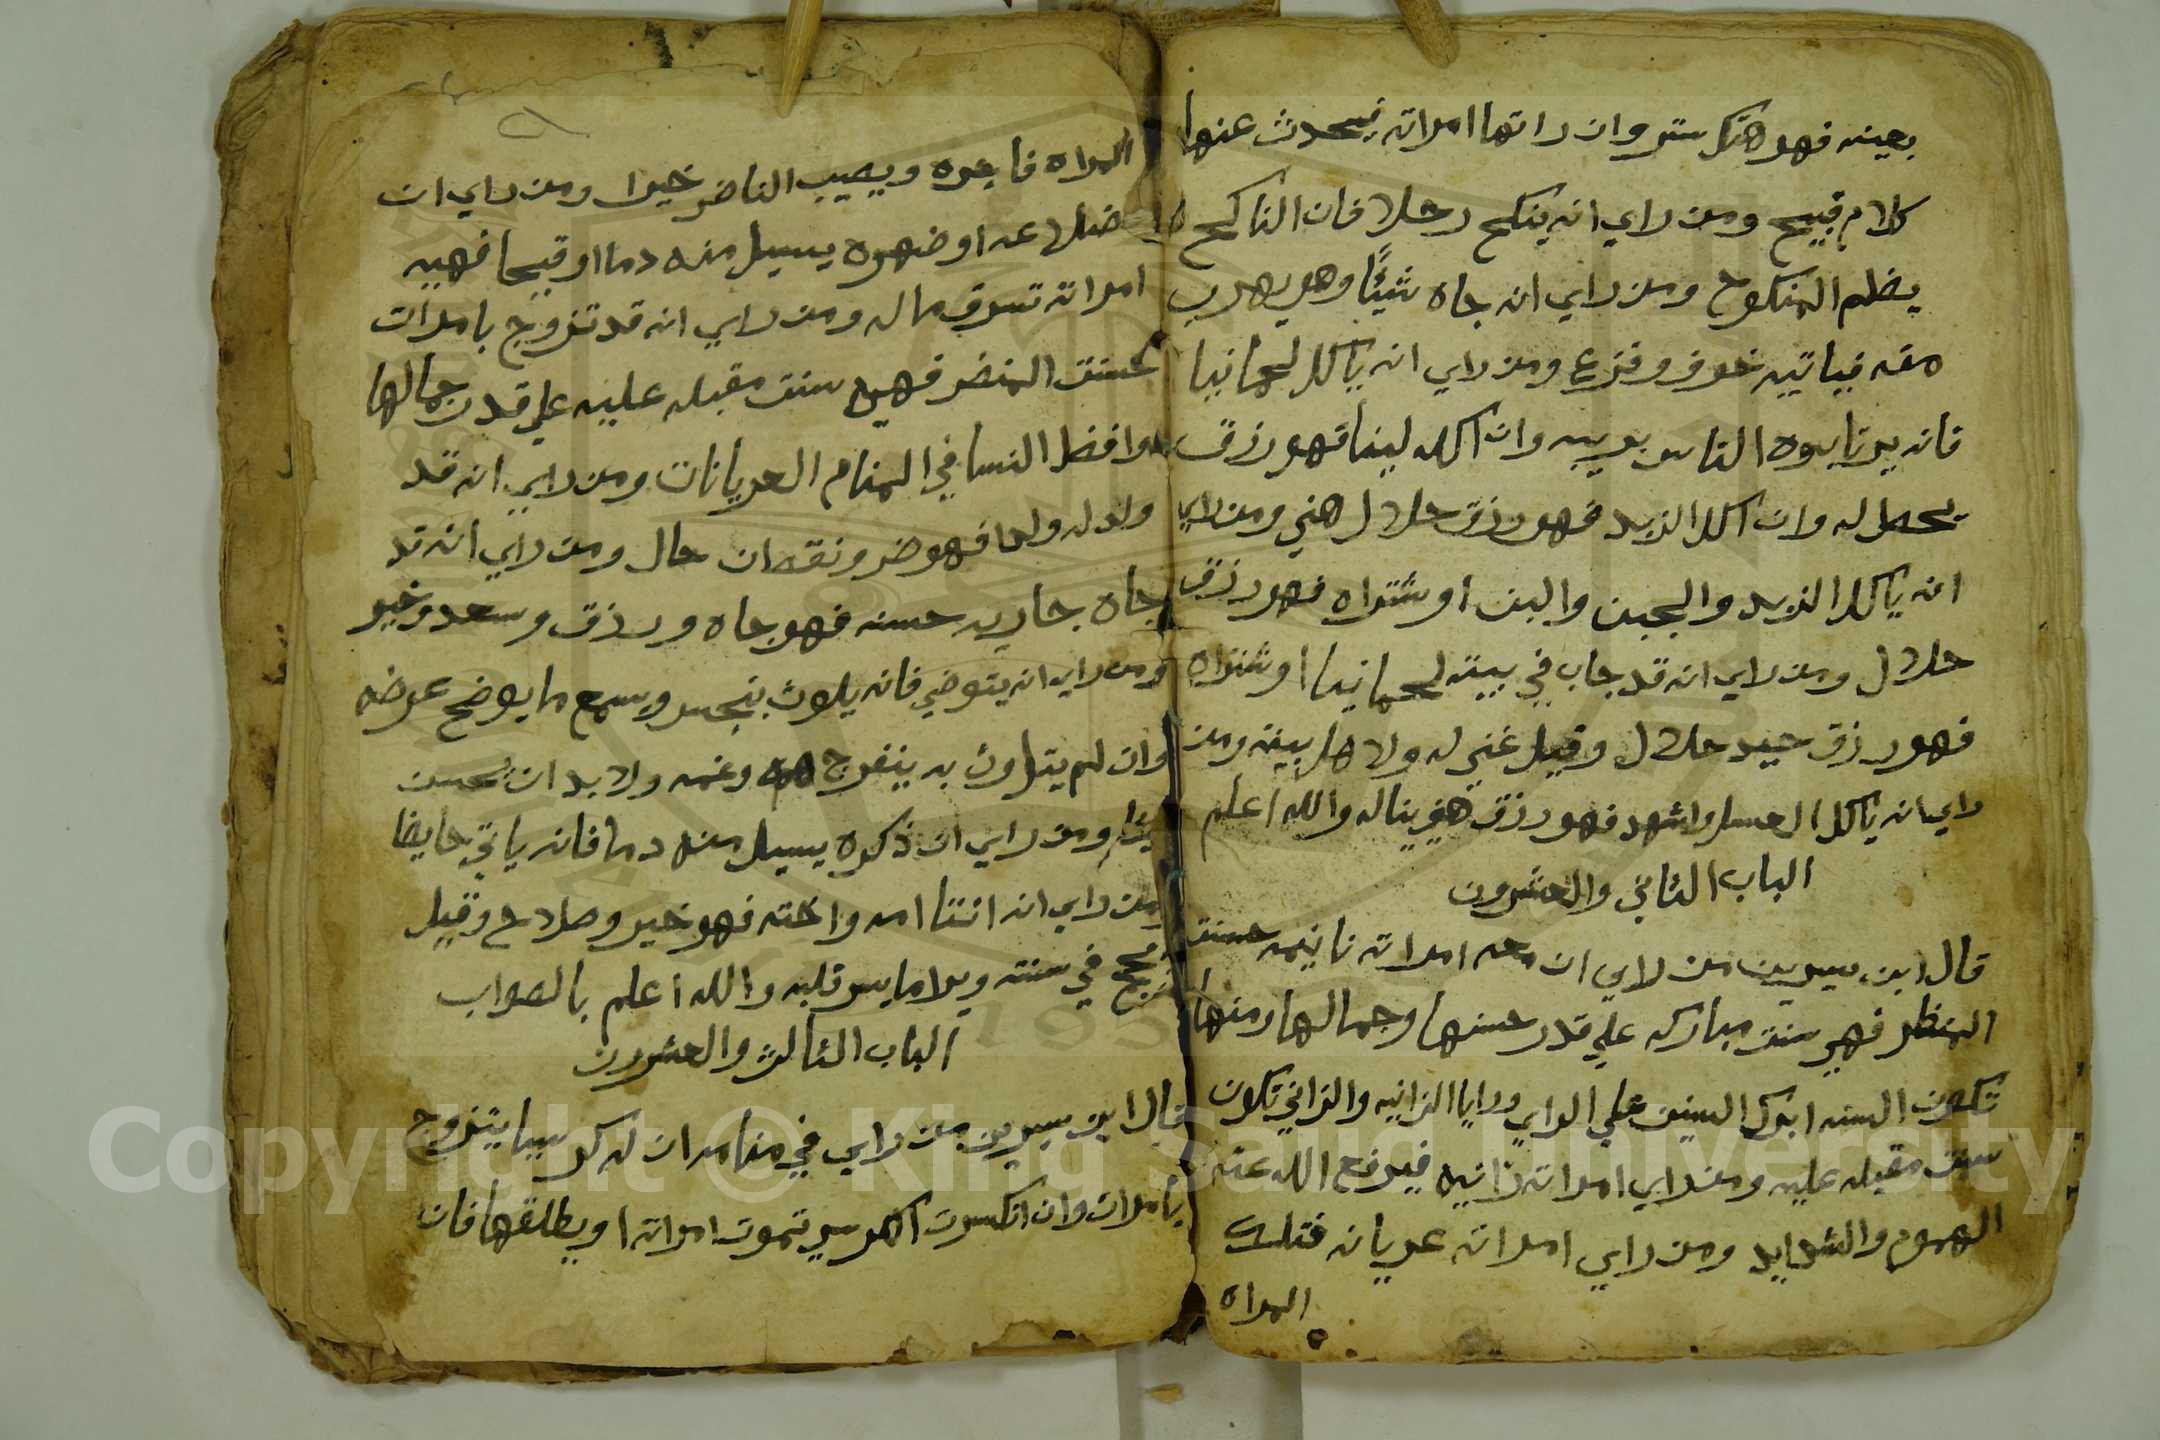 بعينه فهو هتك ستر وان راتها امراته فيحدث عنها
كلام قبيح ومن راي انه ينكح رجلا فان الناكح
يظلم المنكوح ومن راي انه جاه شيئًا وهو يهرب
منه فياتيه خوف وفزع ومن راي انه ياكل لحما نيا
فانه الناس وان اكله لينا فهو رزق
يحصل له وان اكل الزبد فهو رزق حلال هني ومن راي
انه ياكل الزبد والجبن والبن او شتراه فهو رزق
حلال ومن راي انه قد جاب في بيته لحما نيا او شتراه
فهو رزق جيد حلال وقيل غني له ولاهل بيته ومن
راي انه ياكل العسل واشهد فهو رزق هني يناله والله اعلم
الباب الثاني والعشرون
قال ابن سيرين من راي ان معه امراته نايمه حسنت
المنظر فهي سنت مباركه علي قدر حسنها وجمالها ومنها
تكون السنه ابرك السنين علي الراي ورايا الزانيه والزاني تكون
سنت مقبله عليه ومن راي امراته زانيه فيرفع الله عنه
الهموم والشدايد ومن راي امراته عريانه فتلك
المراه
المراه فاجره ويصيب الناضر خيرا ومن راي ان
ضلاعه او ضهره يسيل منه دما او قيحا فهيه
امراته تسرق ماله ومن راي انه قد تزوج بامرات
حسنت المنضر فهي سنت مقبله عليه علي قدر جمالها
وافضل النسا في المنام العريانات ومن راي انه قد
ولد له ولدا فهو ضر ونقصان حال ومن راي انه قد
جاه جاريه حسنه فهو جاه ورزق وسعد وخير
ومن راي انه يتوضي فانه يلوث بنجس ويسمع ما يوضح عرضه
وان لم يتلوث به ينفرج همه وغمه ولا بد ان يحسن
ومن راي ان ذكره يسيل منه دما فانه ياتي حايضا
ومن راي انه اتتا امه واخته فهو خير وصلاح وقيل
يحج في سنته ويرا ما يسر قلبه والله اعلم بالصواب
الباب الثالث والعشرون
قال ابن سيرين من راي في منامه ان له كرسيا يتزوج
بامرات وان انكسرت الكرسي تموت امراته او يطلقها فان
Copyright © King Saud University